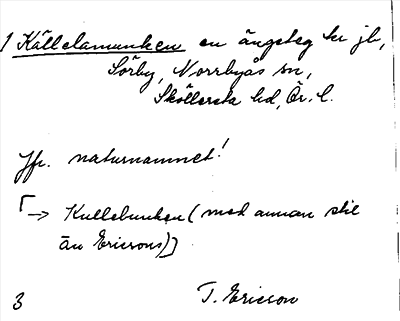 1 Källelamunken en ängsteg hr jb,
Sörby, Norrbyås sn,
Sköllersta hd, Ör. l.
Jfr. naturnamnet!
[→ Kullebunken (med annan stil
än Ericsons)]
3 T. Ericson